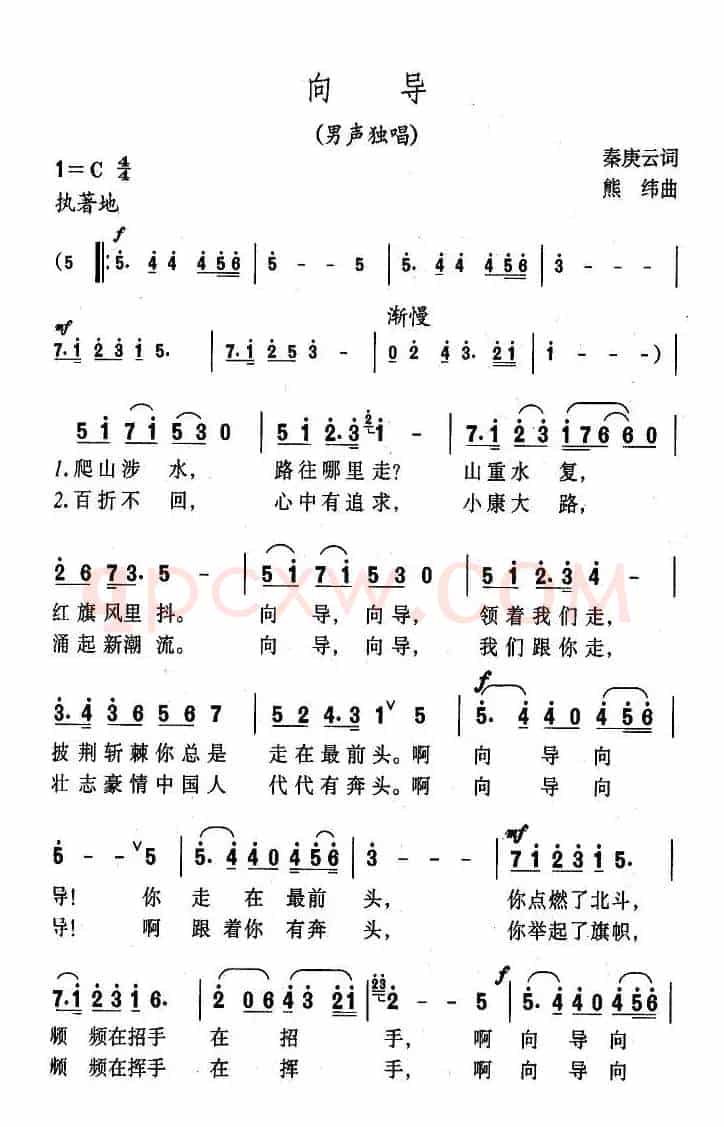 向 导
(男声独唱)
1=C 4/4
秦庚云词
执著地
熊 纬曲
f
(5 ‖: 5. 4 4 4 5 6 | 5 - - 5 | 5. 4 4 4 5 6 | 3 - - - |
mf
渐慢
7. 1 2 3 1 5. | 7. 1 2 5 3 - | 0 2 4 3. 2 1 | 1 - - ) |
5 1 7 1 5 3 0 | 5 1 2. 3 2 1 - | 7. 1 2 3 1 7 6 6 0 |
1.爬山涉 水, 路往哪里走? 山重水 复,
2.百折不 回, 心中有追求, 小康大 路,
2 6 7 3. 5 - | 5 1 7 1 5 3 0 | 5 1 2. 3 4 - |
qpcxw.com
红旗风里抖。 向 导, 向导, 领着我们走,
涌起新潮流。 向 导, 向导, 我们跟你走,
f
3. 4 3 6 5 6 7 | 5 2 4. 3 1 ∨ 5 | 5. 4 4 0 4 5 6 |
披荆斩棘你总是 走在最前头。啊 向 导向
壮志豪情中国人 代代有奔头。啊 向 导向
mf
5 - - ∨ 5 | 5. 4 4 0 4 5 6 | 3 - - - | 7 1 2 3 1 5. |
导! 你 走 在 最前 头, 你点燃了北斗,
导! 啊 跟着你 有奔 头, 你举起了旗帜,
f
7. 1 2 3 1 6. | 2 0 6 4 3 2 1 | 2 3 2 - - 5 | 5. 4 4 0 4 5 6 |
频 频在招手 在 招 手, 啊 向 导向
频 频在挥手 在 挥 手, 啊 向 导向